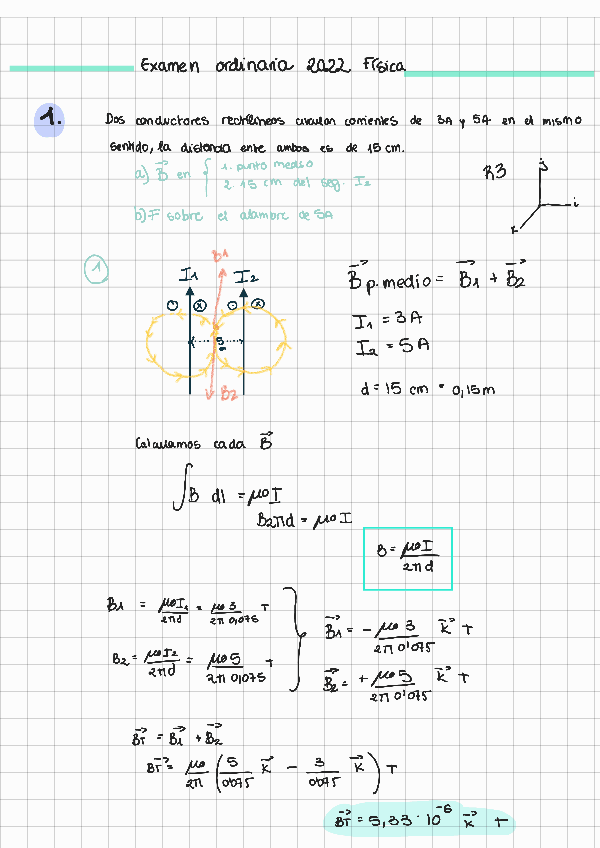 Examen ordinaria 2022 Física
1. Dos conductores rectilíneos circulan corrientes de 3A y 5A en el mismo
sentido, la distancia entre ambos es de 15 cm.
a) B⃗ en { 1. punto medio
2. 15 cm del seg. I2
b) F sobre el alambre de 5A
R3
j
i
k
1
B1
I1 I2
B2
B⃗ p.medio = B⃗1 + B⃗2
I1 = 3A
I2 = 5A
d = 15 cm = 0,15m
Calculamos cada B⃗
∫B dl = μ0 I
B2πd = μ0 I
B = μ0 I / 2πd
B1 = μ0 I1 / 2πd = μ0 3 / 2π 0,075 T
B2 = μ0 I2 / 2πd = μ0 5 / 2π 0,075 T
B⃗1 = - μ0 3 / 2π 0'075 k⃗ T
B⃗2 = + μ0 5 / 2π 0'075 k⃗ T
B⃗T = B⃗1 + B⃗2
B⃗T = μ0 / 2π (5 / 0'075 k⃗ - 3 / 0'075 k⃗) T
B⃗T = 5,33 · 10⁻⁶ k⃗ T